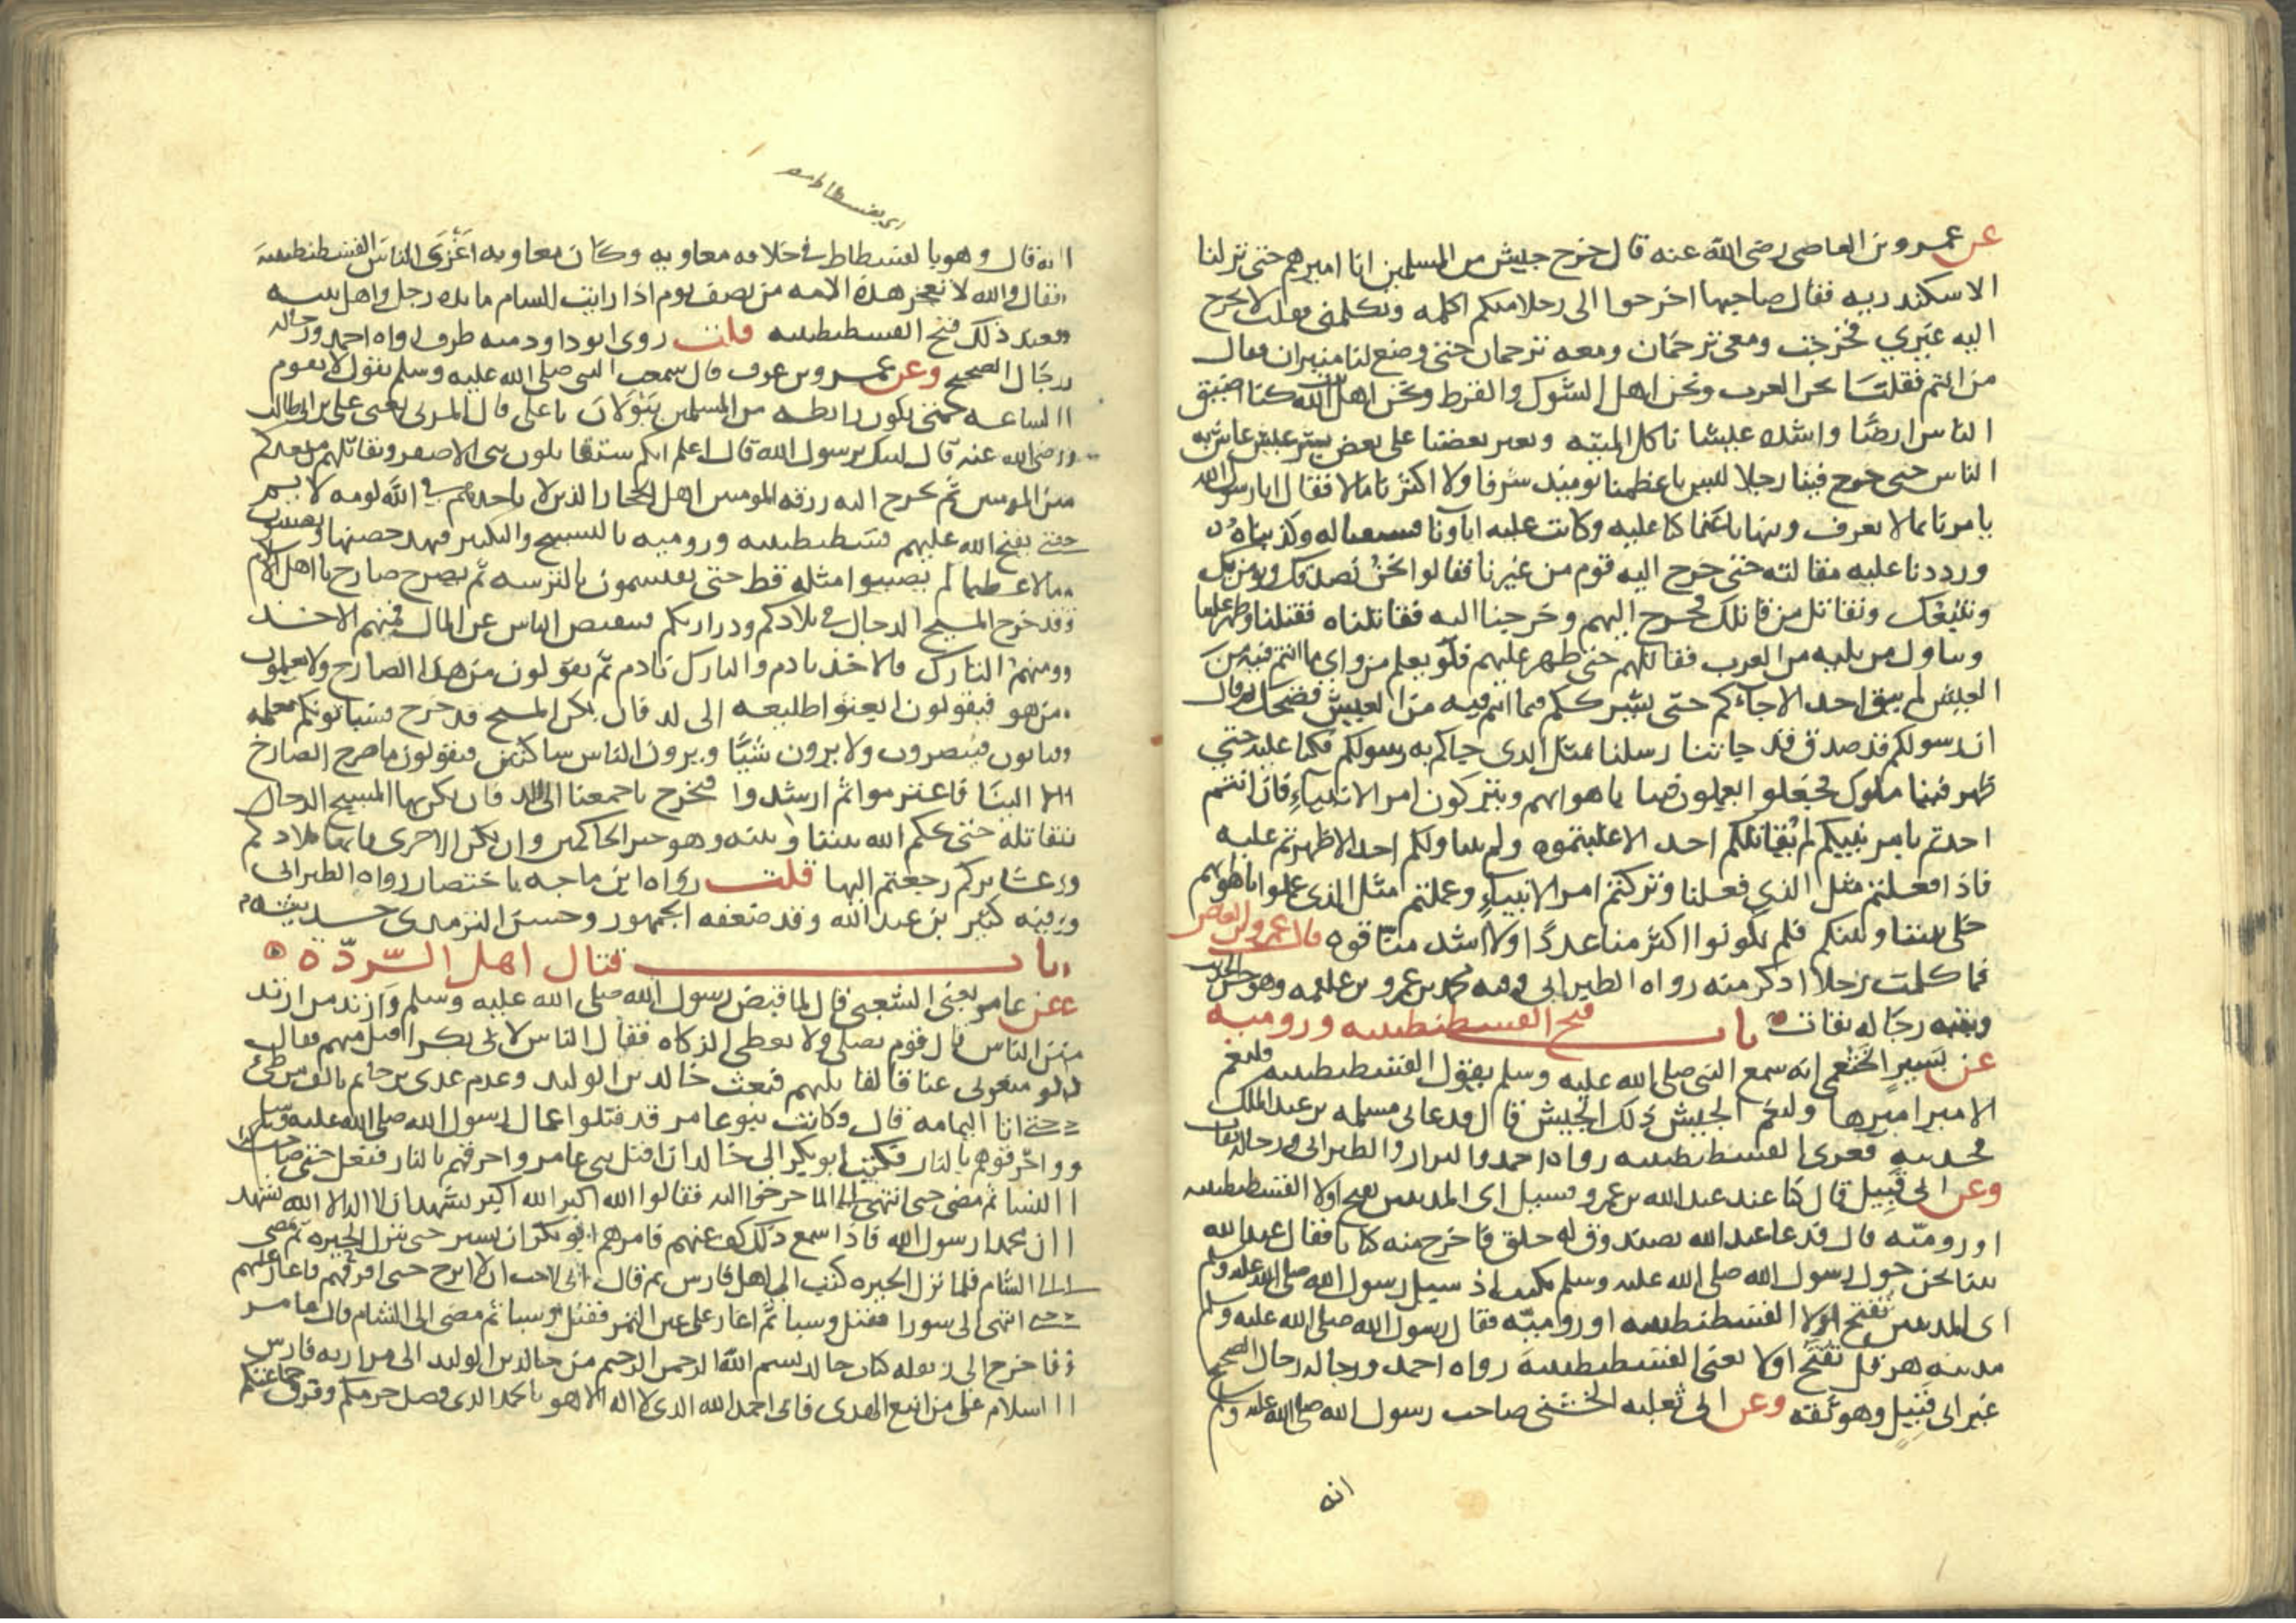 عن عمرو بن العاصى رضى الله عنه قال خرج جيش من المسلمين انا اميرهم حتى نزلنا
الاسكندريه فقال صاحبها اخرجوا الى رجلا منكم اكلمه ويكلمنى فقلت لا يخرج
اليه غيري فخرجت ومعى ترجمان ومعه ترجمان حتى وضع لنا منبران فقال
من انتم فقلت نحن العرب ونحن اهل الشوك والقرظ ونحن اهل بيت الله كنا اضيق
الناس ارضا واشده عيشا ناكل الميته ويغير بعضنا على بعض بشر عيش عاش به
الناس حتى خرج فينا رجل ليس باعظمنا يومئذ شرفا ولا اكثرنا مالا فقال انا رسول الله
يامرنا بما لا نعرف وينهانا عما كنا عليه وكانت عليه اباونا فشنعنا له وكذبناه
ورددنا عليه مقالته حتى خرج اليه قوم من غيرنا فقالوا نحن نصدقك ونومن بك
ونتبعك ونقاتل من قاتلك فخرج اليهم وخرجنا اليه فقاتلناه فقتلنا وظهر علينا
وتناول من يليه من العرب فقاتلهم حتى ظهر عليهم فلو يعلم من وراى ما انتم فيه من
العيش لم يبق احد الا جاءكم حتى يشرككم فيما انتم فيه من العيش فضحك ثم قال
ان رسولكم قد صدق قد جاتنا رسلنا بمثل الذى جاكم به رسولكم فكنا عليه حتى
ظهر فينا ملوك فجعلوا يعملون فينا باهوايهم ويتركون امر الانبياء فان انتم
اخذتم بامر نبيكم لم يقاتلكم احد الا غلبتموه ولم يتناولكم احد الا ظهرتم عليه
فاذا فعلتم مثل الذى فعلنا وتركتم امر الانبياء وعملتم مثل الذى عملوا باهوايهم
خلى بيننا وبينكم فلم تكونوا اكثر منا عددا ولا اشد منا قوه قال عمرو بن العاص
فما كلمت رجلا اذكر منه رواه الطبرانى وفيه محمد بن عمرو بن علقمه وهو حسن الحديث
وبقيه رجاله ثقات باب فتح القسطنطينيه وروميه
عن بشير الخثعمى انه سمع النبى صلى الله عليه وسلم يقول لتفتحن القسطنطينيه ولنعم
الامير اميرها ولنعم الجيش ذلك الجيش قال فدعانى مسلمه بن عبد الملك
فحدثته فغزى القسطنطينيه رواه احمد والبزار والطبرانى ورجاله ثقات
وعن ابى قبيل قال كنا عند عبد الله بن عمرو وسيل اى المدينتين تفتح اولا القسطنطينيه
او روميه قال فدعا عبد الله بصندوق له حلق فاخرج منه كتابا فقال عبد الله
بينا نحن حول رسول الله صلى الله عليه وسلم نكتب اذ سيل رسول الله صلى الله عليه وسلم
اى المدينتين تفتح اولا القسطنطينيه او روميه فقال رسول الله صلى الله عليه وسلم
مدينه هرقل تفتح اولا يعنى القسطنطينيه رواه احمد ورجاله رجال الصحيح
غير ابى قبيل وهو ثقه وعن ابى ثعلبه الخشنى صاحب رسول الله صلى الله عليه وسلم
انه
انه قال وهو بالفسطاط فى خلافه معاويه وكان معاويه اغزى الناس القسطنطينيه
فقال والله لا تعجز هذه الامه من نصف يوم اذا رايت الشام مايده رجل واهل بيته
فعند ذلك فتح القسطنطينيه قلت روى ابو داود منه طرف رواه احمد ورجاله
رجال الصحيح وعن عمرو بن عوف قال سمعت النبى صلى الله عليه وسلم يقول لا تقوم
الساعه حتى تكون رابطه من المسلمين يا على قال المزنى يعنى على بن ابى طالب
رضى الله عنه قال لبيك يرسول الله قال اعلم انكم ستقاتلون بنى الاصفر ويقاتلهم من بعدكم
من المومنين ثم يخرج اليه روقه المومنين اهل الحجاز الذين لا ياخذهم فى الله لومه لايم
حتى يفتح الله عليهم قسطنطينيه وروميه بالتسبيح والتكبير فيهد حصنها ويصيبون
مالا عظيما لم يصيبوا مثله قط حتى يقتسمون بالترسه ثم يصرخ صارخ يا اهل الاسلام
قد خرج المسيح الدجال فى بلادكم وذراريكم فينفض الناس عن المال فمنهم الاخذ
ومنهم التارك فالاخذ نادم والتارك نادم ثم يقولون من هذا الصارخ ولا يعلمون
من هو فيقولون ابعثوا طليعه الى لد فان يكن المسيح قد خرج فسياتونكم بعلمه
فياتون فيبصرون ولا يرون شيئا ويرون الناس ساكنين فيقولون ما صرخ الصارخ
الا لنبا فاعتزموا ثم ارشدوا فنخرج باجمعنا الى لد فان يكن بها المسيح الدجال
نقاتله حتى يحكم الله بيننا وبينه وهو خير الحاكمين وان تكن الاخرى فانها بلادكم
وعشايركم رجعتم اليها قلت رواه ابن ماجه باختصار رواه الطبرانى
وفيه كثير بن عبد الله وقد ضعفه الجمهور وحسن الترمذى حديثه
باب قتال اهل الرده
عن عامر يعنى الشعبى قال لما قبض رسول الله صلى الله عليه وسلم وارتد من ارتد
من الناس قال قوم نصلى ولا نعطى الزكاه فقال الناس لابى بكر اقبل منهم فقال
لو منعونى عناقا لقاتلتهم فبعث خالد بن الوليد وقدم عدى بن حاتم بالف من طى
حتى اتا اليمامه قال وكانت بنو عامر قد قتلوا عمال رسول الله صلى الله عليه وسلم
واحرقوهم بالنار فكتب ابو بكر الى خالد ان اقتل بنى عامر واحرقهم بالنار ففعل حتى صاحت
النسا ثم مضى حتى انتهى الى الما خرجوا اليه فقالوا الله اكبر الله اكبر نشهد ان لا اله الا الله نشهد
ان محمدا رسول الله فاذا سمع ذلك كف عنهم فامرهم ابو بكر ان يسير حتى ينزل الحيره ثم يمضى
الى الشام فلما نزل الحيره كتب الى اهل فارس ثم قال انى لاحب ان لا ابرح حتى افزعهم فاغار عليهم
حتى انتهى الى سورا فقتل وسبا ثم اغار على عين التمر فقتل وسبا ثم مضى الى الشام قال عامر
فاخرج الى ابن بقيله كتاب خالد بسم الله الرحمن الرحيم من خالد بن الوليد الى مرازبه فارس
السلام على من اتبع الهدى فانى احمد الله الذى لا اله الا هو بالحمد الذى فصل حرمكم وفرق جماعتكم